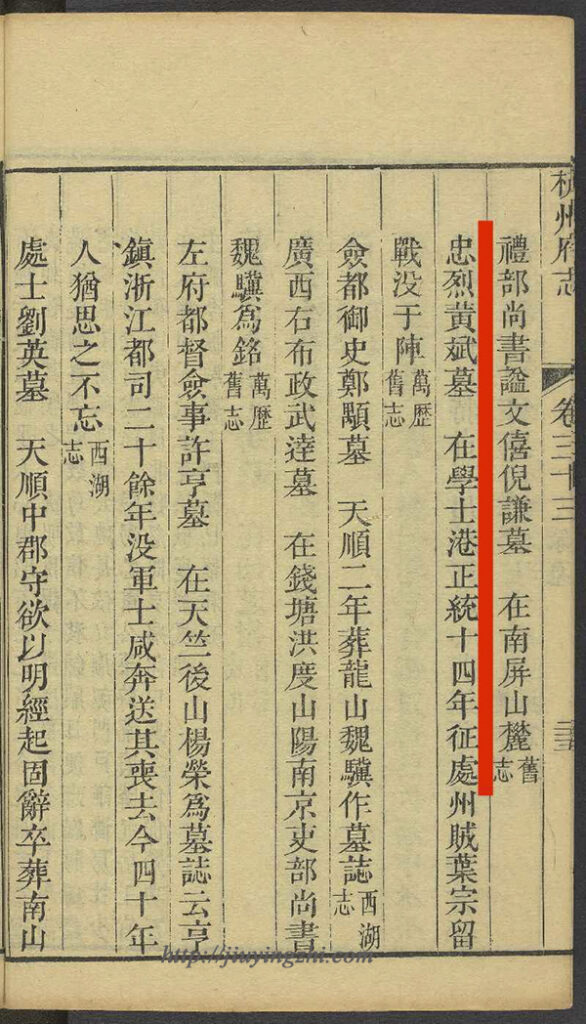 杭州府志 卷三十三
禮部尚書謚文僖倪謙墓 在南屏山麓舊志
忠烈黃斌墓 在學士港正統十四年征處州賊葉宗留
戰没于陣萬歷舊志
僉都御史鄭顒墓 天順二年葬龍山魏驥作墓誌西湖志
廣西右布政武逹墓 在錢塘洪度山陽南京吏部尚書
魏驥為銘萬歷舊志
左府都督僉事許亨墓 在天竺後山楊榮為墓誌云亨
鎮浙江都司二十餘年没軍士咸奔送其喪去今四十年
人猶思之不忘西湖志
處士劉英墓 天順中郡守欲以明經起固辭卒葬南山
http://jiuyingzhi.com